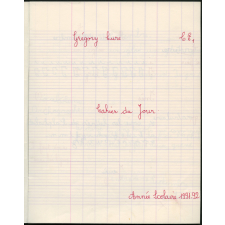 Grégory Curé CE1
Cahier du Jour
Année Scolaire 1991.92